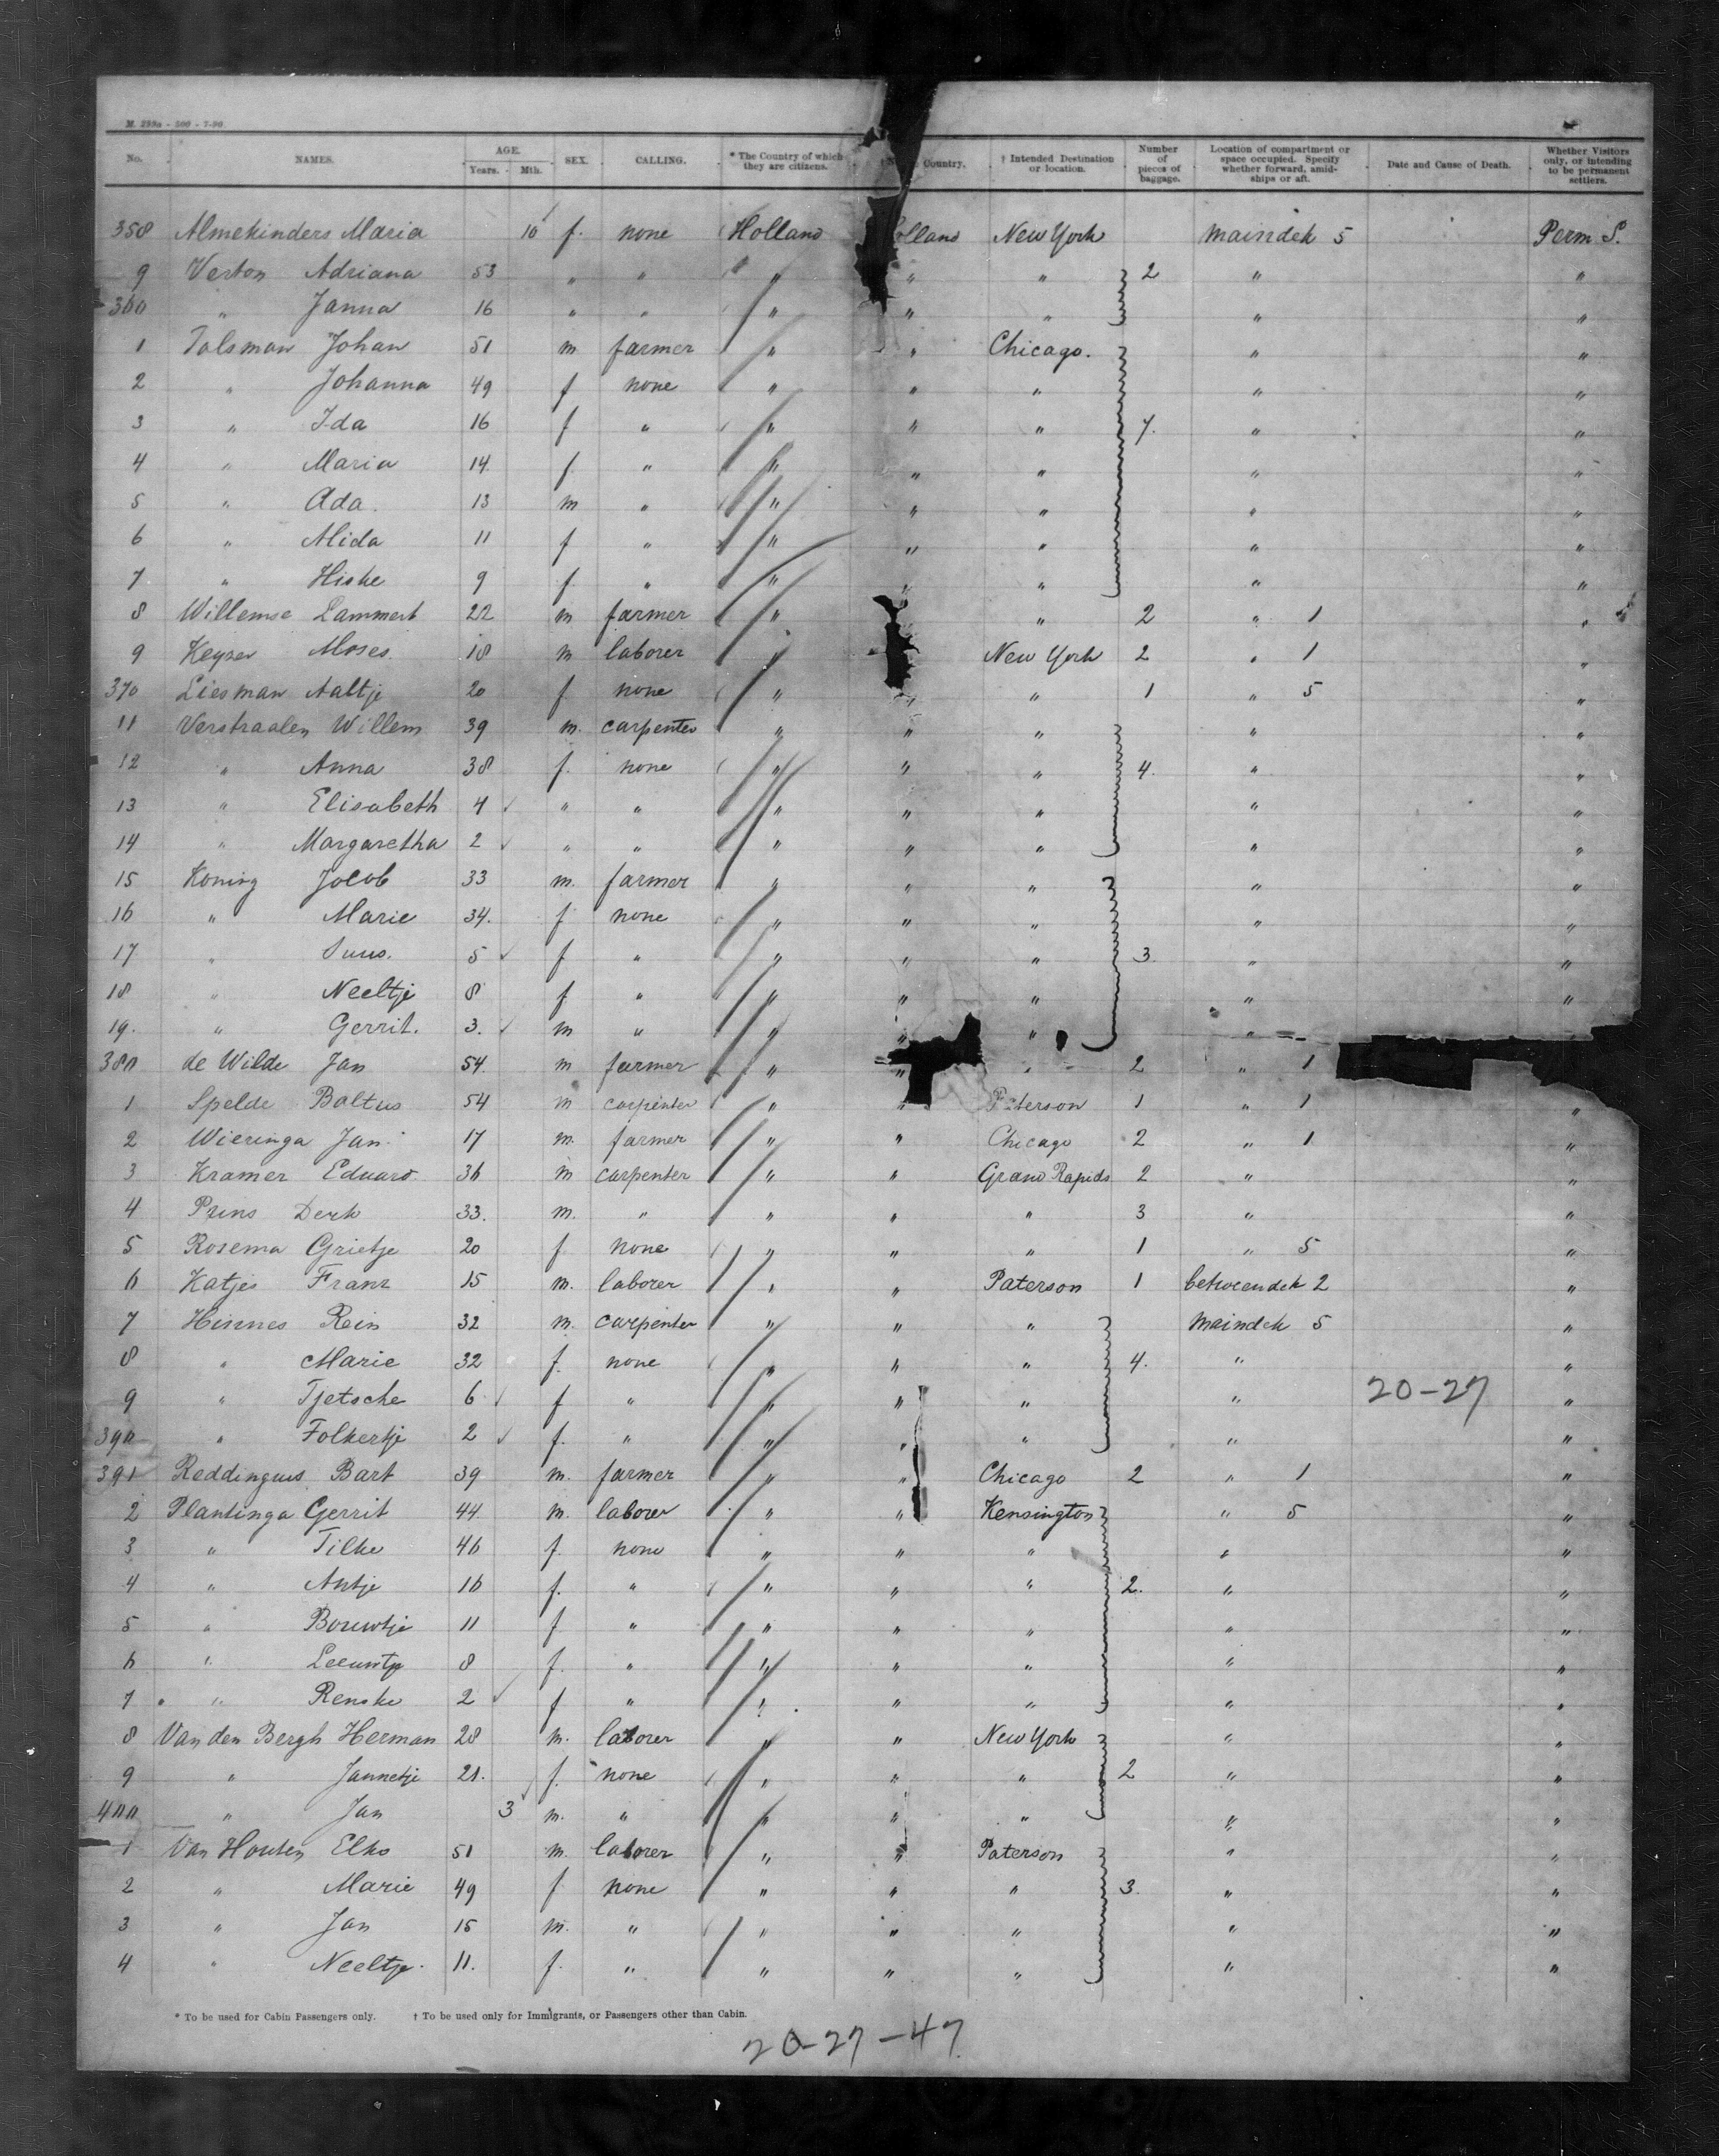 M. 299a - 500 - 7-90.
No. NAMES. AGE. Years. Mth. SEX. CALLING. * The Country of which they are citizens. Country. † Intended Destination or location. Number of pieces of baggage. Location of compartment or space occupied. Specify whether forward, amidships or aft. Date and Cause of Death. Whether Visitors only, or intending to be permanent settlers.
358 Almekinders Maria 10 f. none Holland olland New York maindek 5 Perm S.
9 Verton Adriana 53 " " " " " 2 " "
360 " Janna 16 " " " " " " "
1 Talsman Johan 51 m farmer " " Chicago. " "
2 " Johanna 49 f none " " " " "
3 " Ida 16 f " " " " 7. " "
4 " Maria 14. f. " " " " " "
5 " Ada. 13 m " " " " " "
6 " Alida 11 f " " " " " "
7 " Hiske 9 f. " " " " " "
8 Willemse Lammert 22 m farmer " " 2 " 1 "
9 Keyser Moses. 18 m laborer " New York 2 " 1 "
370 Liesman Aaltje 20 f none " " " 1 " 5 "
11 Verstraalen Willem 39 m. carpenter " " " " "
12 " Anna 38 f. none " " " 4. " "
13 " Elisabeth 4 " " " " " " "
14 " Margaretha 2 " " " " " " "
15 Koning Jacob 33 m. farmer " " " " "
16 " Marie 34. f none " " " " "
17 " 5 f " " " " 3. " "
18 " Neeltje 8 f " " " " " "
19. " Gerrit. 3. m " " " " "
380 de Wilde Jan 54. m farmer " " " 2 " 1
1 Spelde Baltus 54 m carpenter " " Paterson 1 " 1 "
2 Wieringa Jan 17 m. farmer " " Chicago 2 " 1 "
3 Kramer Eduard 36 m carpenter " " Grand Rapids 2 " "
4 Prins Derk 33. m. " " " " 3 " "
5 Rosema Grietje 20 f none " " " 1 " 5 "
6 Katjes Franz 15 m. laborer " " Paterson 1 betweendek 2 "
7 Hinnes Rein 32 m. carpenter " " " maindek 5 "
8 " Marie 32 f. none " " " 4. " "
9 " Tjetsche 6 f " " " " " 20-27 "
390 " Folkertje 2 f. " " " " " "
391 Reddingius Bart 39 m. farmer " " Chicago 2 " 1 "
2 Plantinga Gerrit 44 m. laborer " " Kensington " 5 "
3 " Tilke 46 f. none " " " " "
4 " Antje 16 f. " " " " 2. " "
5 " Bouwtje 11 f " " " " " "
6 " Leeuwtje 8 f. " " " " " "
7 " Renske 2 f " " " " " "
8 Van den Bergh Herman 28 m. laborer " " New York " "
9 " Jannetje 21. f. none " " " 2 " "
400 " Jan 3 m. " " " " " "
1 Van Houten Elko 51 m. laborer " " Paterson " "
2 " Marie 49 f none " " " 3. " "
3 " Jan 15 m. " " " " " "
4 " Neeltje. 11. f. " " " " " "
* To be used for Cabin Passengers only. † To be used only for Immigrants, or Passengers other than Cabin.
20-27-47